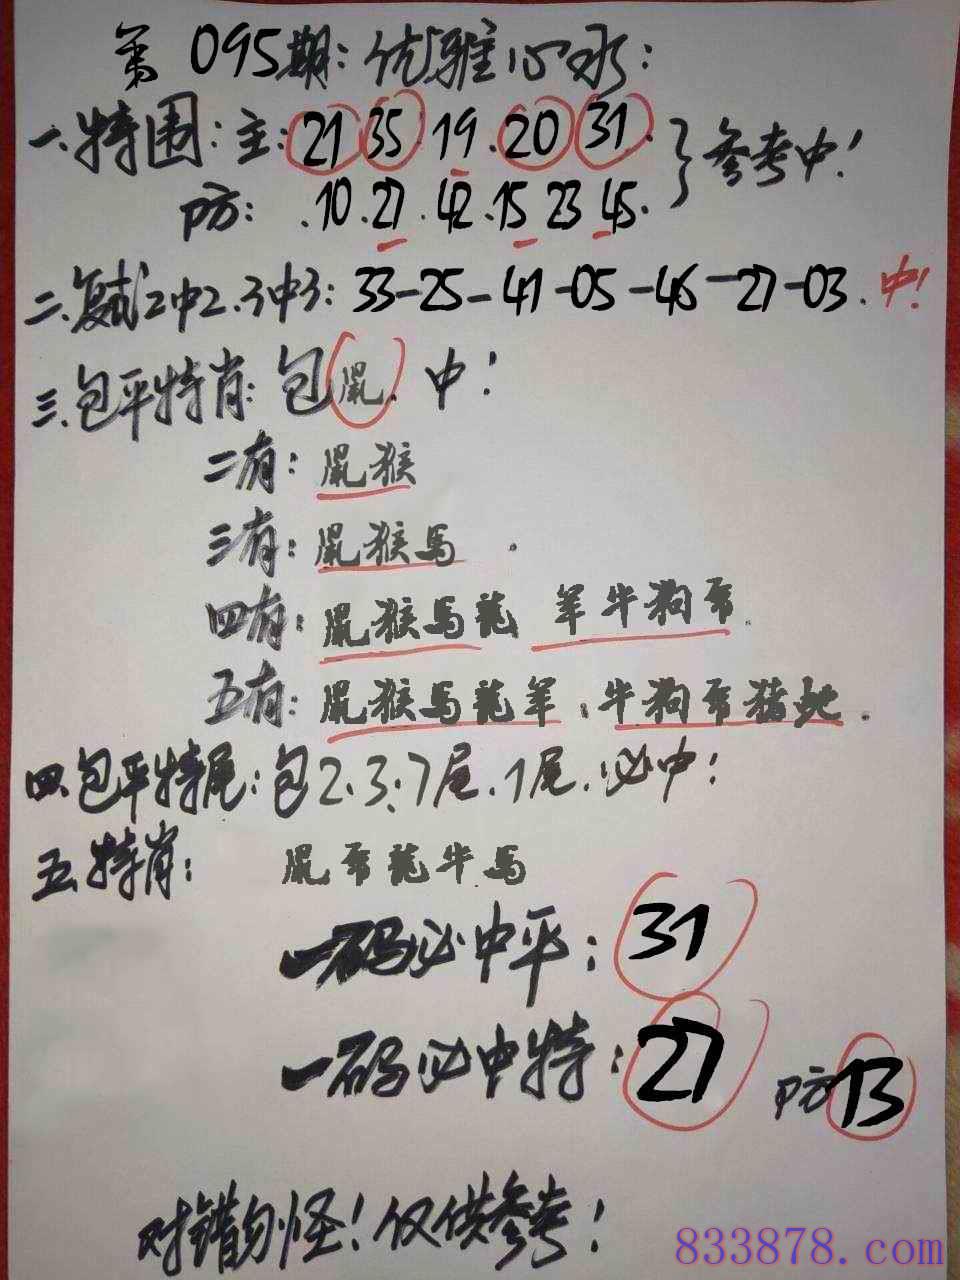 第095期:优雅心水:
一.特围:主:21 35.19.20 31.
防:.10.27.42.15 23 45.
}参考中!
二.复式2中2.3中3:33-25-41-05-46-27-03.中!
三.包平特肖:包鼠.中!
二有:鼠猴
三有:鼠猴馬.
四有:鼠猴馬龍 羊牛狗
五有:鼠猴馬龍羊.牛狗 猪蛇.
四.包平特尾:包2.3.7尾.1尾.必中!
五.特肖: 鼠 龍牛馬
一码必中平:31
一码必中特:27 防13
对错勿怪!仅供参考!
833878.com